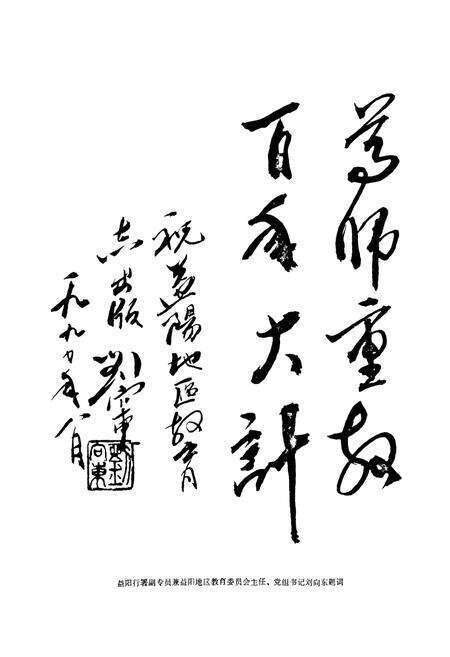 尊师重教
百年大計
祝益陽地区教育
志出版 劉向東
一九九〇年八月
劉向東
益阳行署副专员兼益阳地区教育委员会主任、党组书记刘向东题词